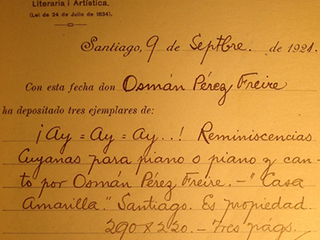 Literaria i Artística.
(Lei de 24 de Julio de 1834).
Santiago, 9 de Septbre. de 1921.
Con esta fecha don Osmán Pérez Freire
ha depositado tres ejemplares de:
¡Ay=Ay=Ay..! Reminiscencias
Cuyanas para piano o piano y can-
to por Osmán Pérez Freire.-"Casa
Amarilla." Santiago. Es propiedad.
290 x 220.-Tres págs.